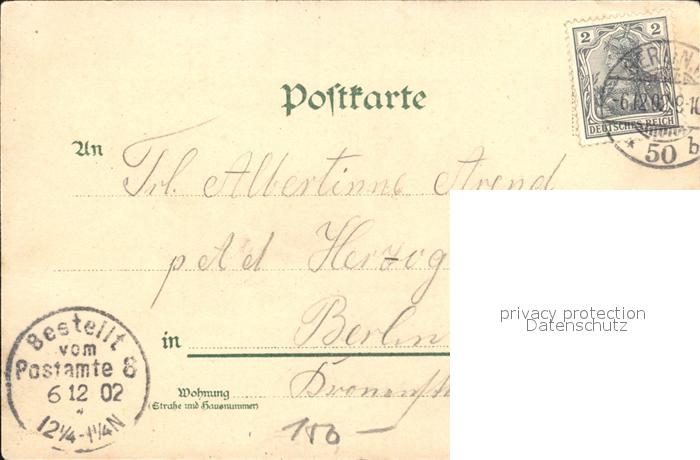 2 2
DEUTSCHES REICH
BERLIN
-6.12.02 9-10
* 50 b
Postkarte
An
Frl. Albertinne Arend
p Ad Herzog
privacy protection
Datenschutz
in Berlin
Wohnung
(Straße und Hausnummer)
Bestellt
vom
Postamte 8
6 12 02
12¼-1¼N